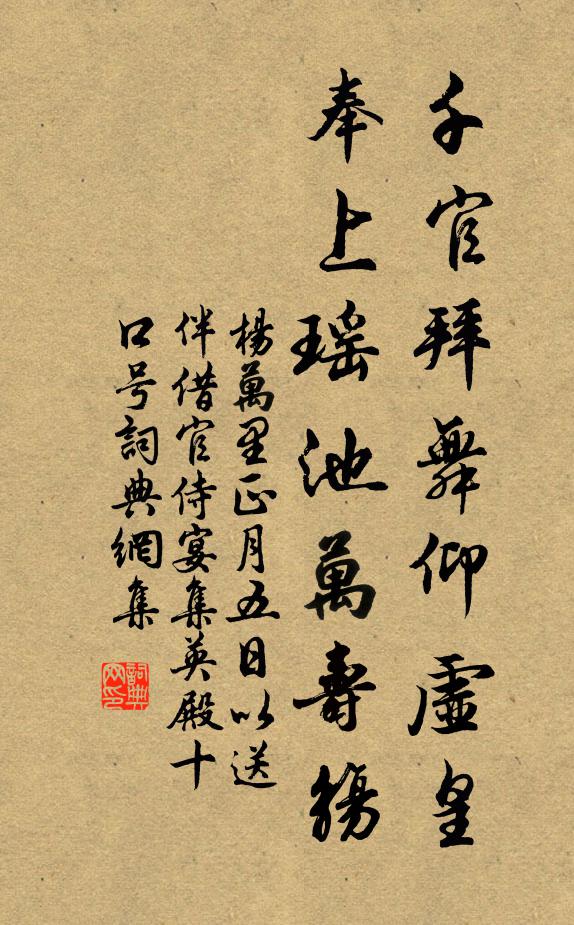 千官拜舞仰虛皇
奉上瑶池萬壽觴
楊萬里正月五日以送
伴借官侍宴集英殿十
口号詞典網集
詞典
网印